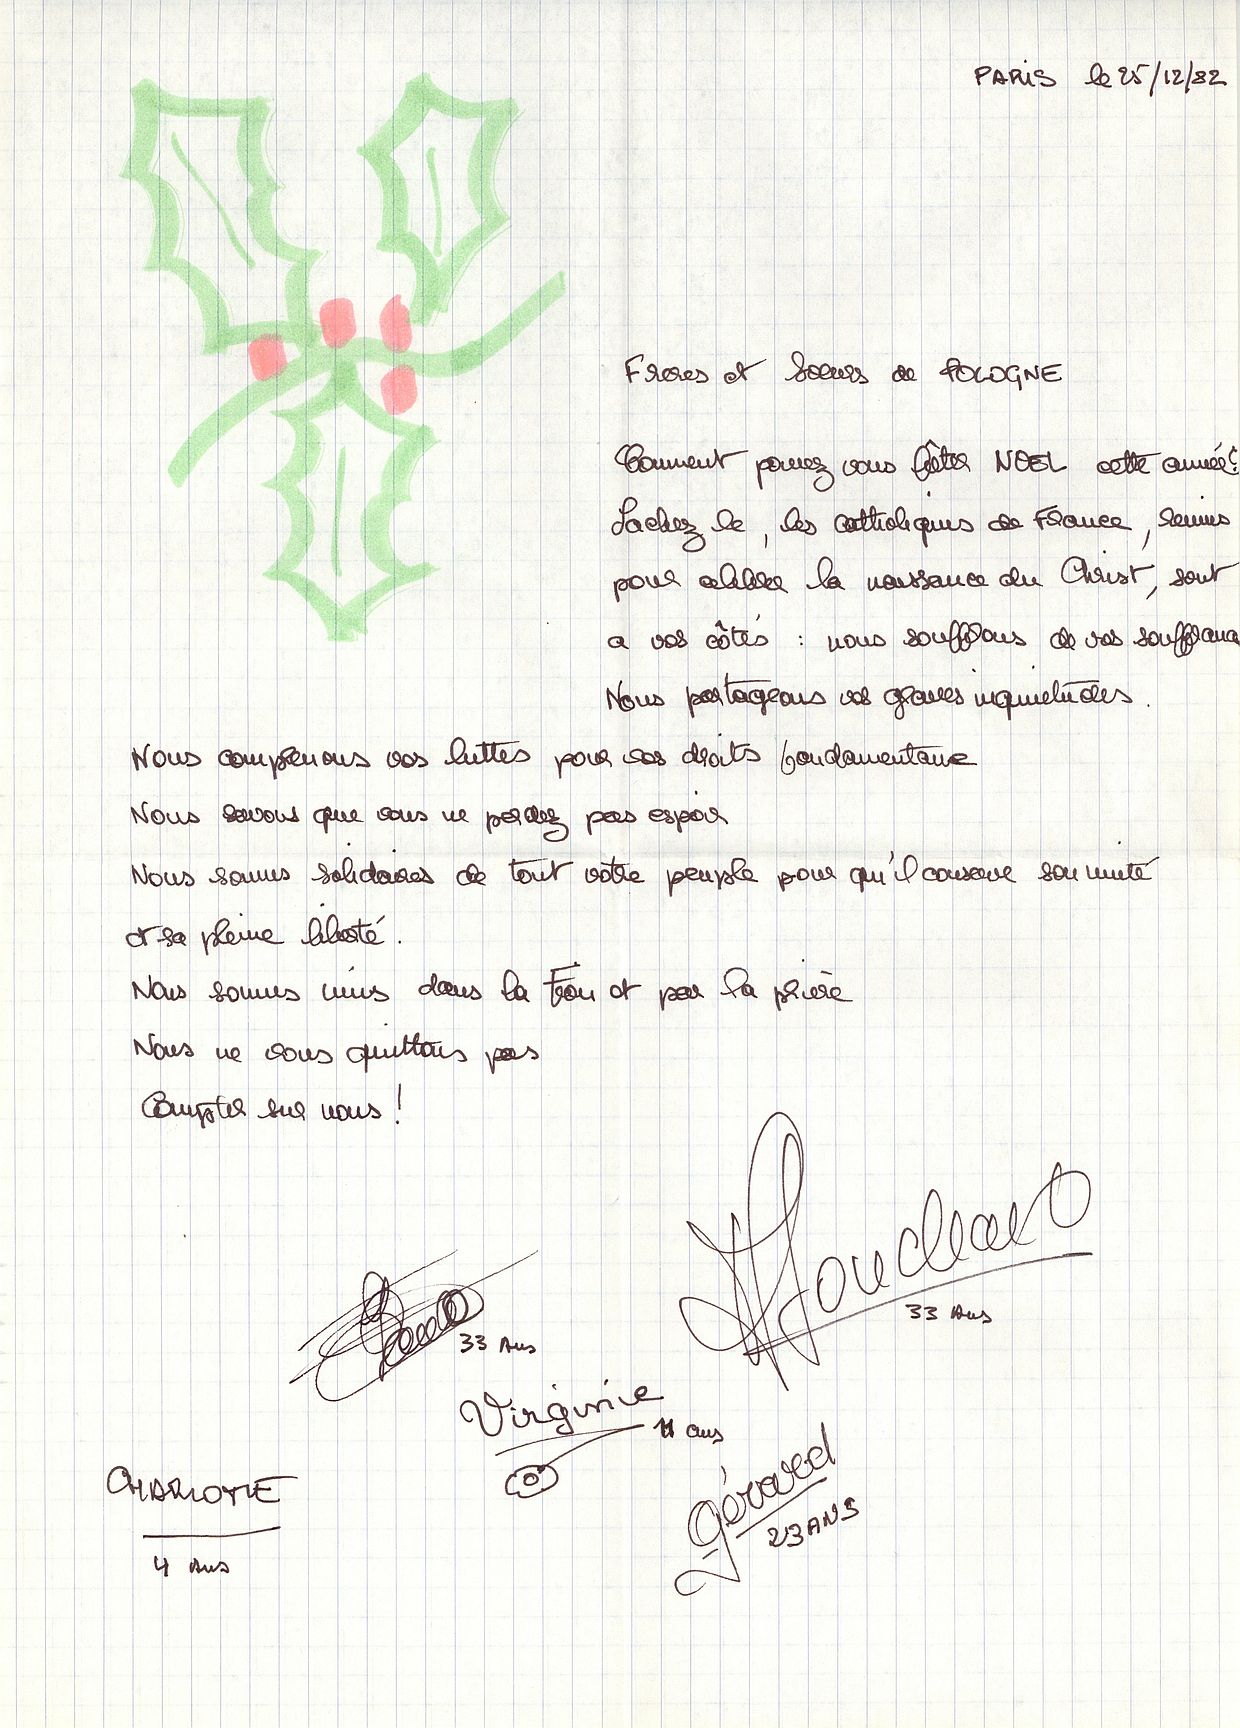 PARIS le 25/12/82
Freres et Soeurs de POLOGNE
Comment pourrez vous fêter NOEL cette année?
Sachez le, les catholiques de France, reunis
pour celebrer la naissance du Christ, sont
a vos côtés : nous souffrons de vos souffrances
Nous partageons vos graves inquietudes.
Nous comprenons vos luttes pour vos droits fondamentaux
Nous savons que vous ne perdez pas espoir
Nous sommes solidaires de tout votre peuple pour qu'il conserve son unité
et sa pleine liberté.
Nous sommes unis dans la Foi et par la prière
Nous ne vous quittons pas
Compter sur nous!
33 Ans
33 Ans
Virginie
11 ans
CHARLOTTE
4 Ans
gérard
23 ANS